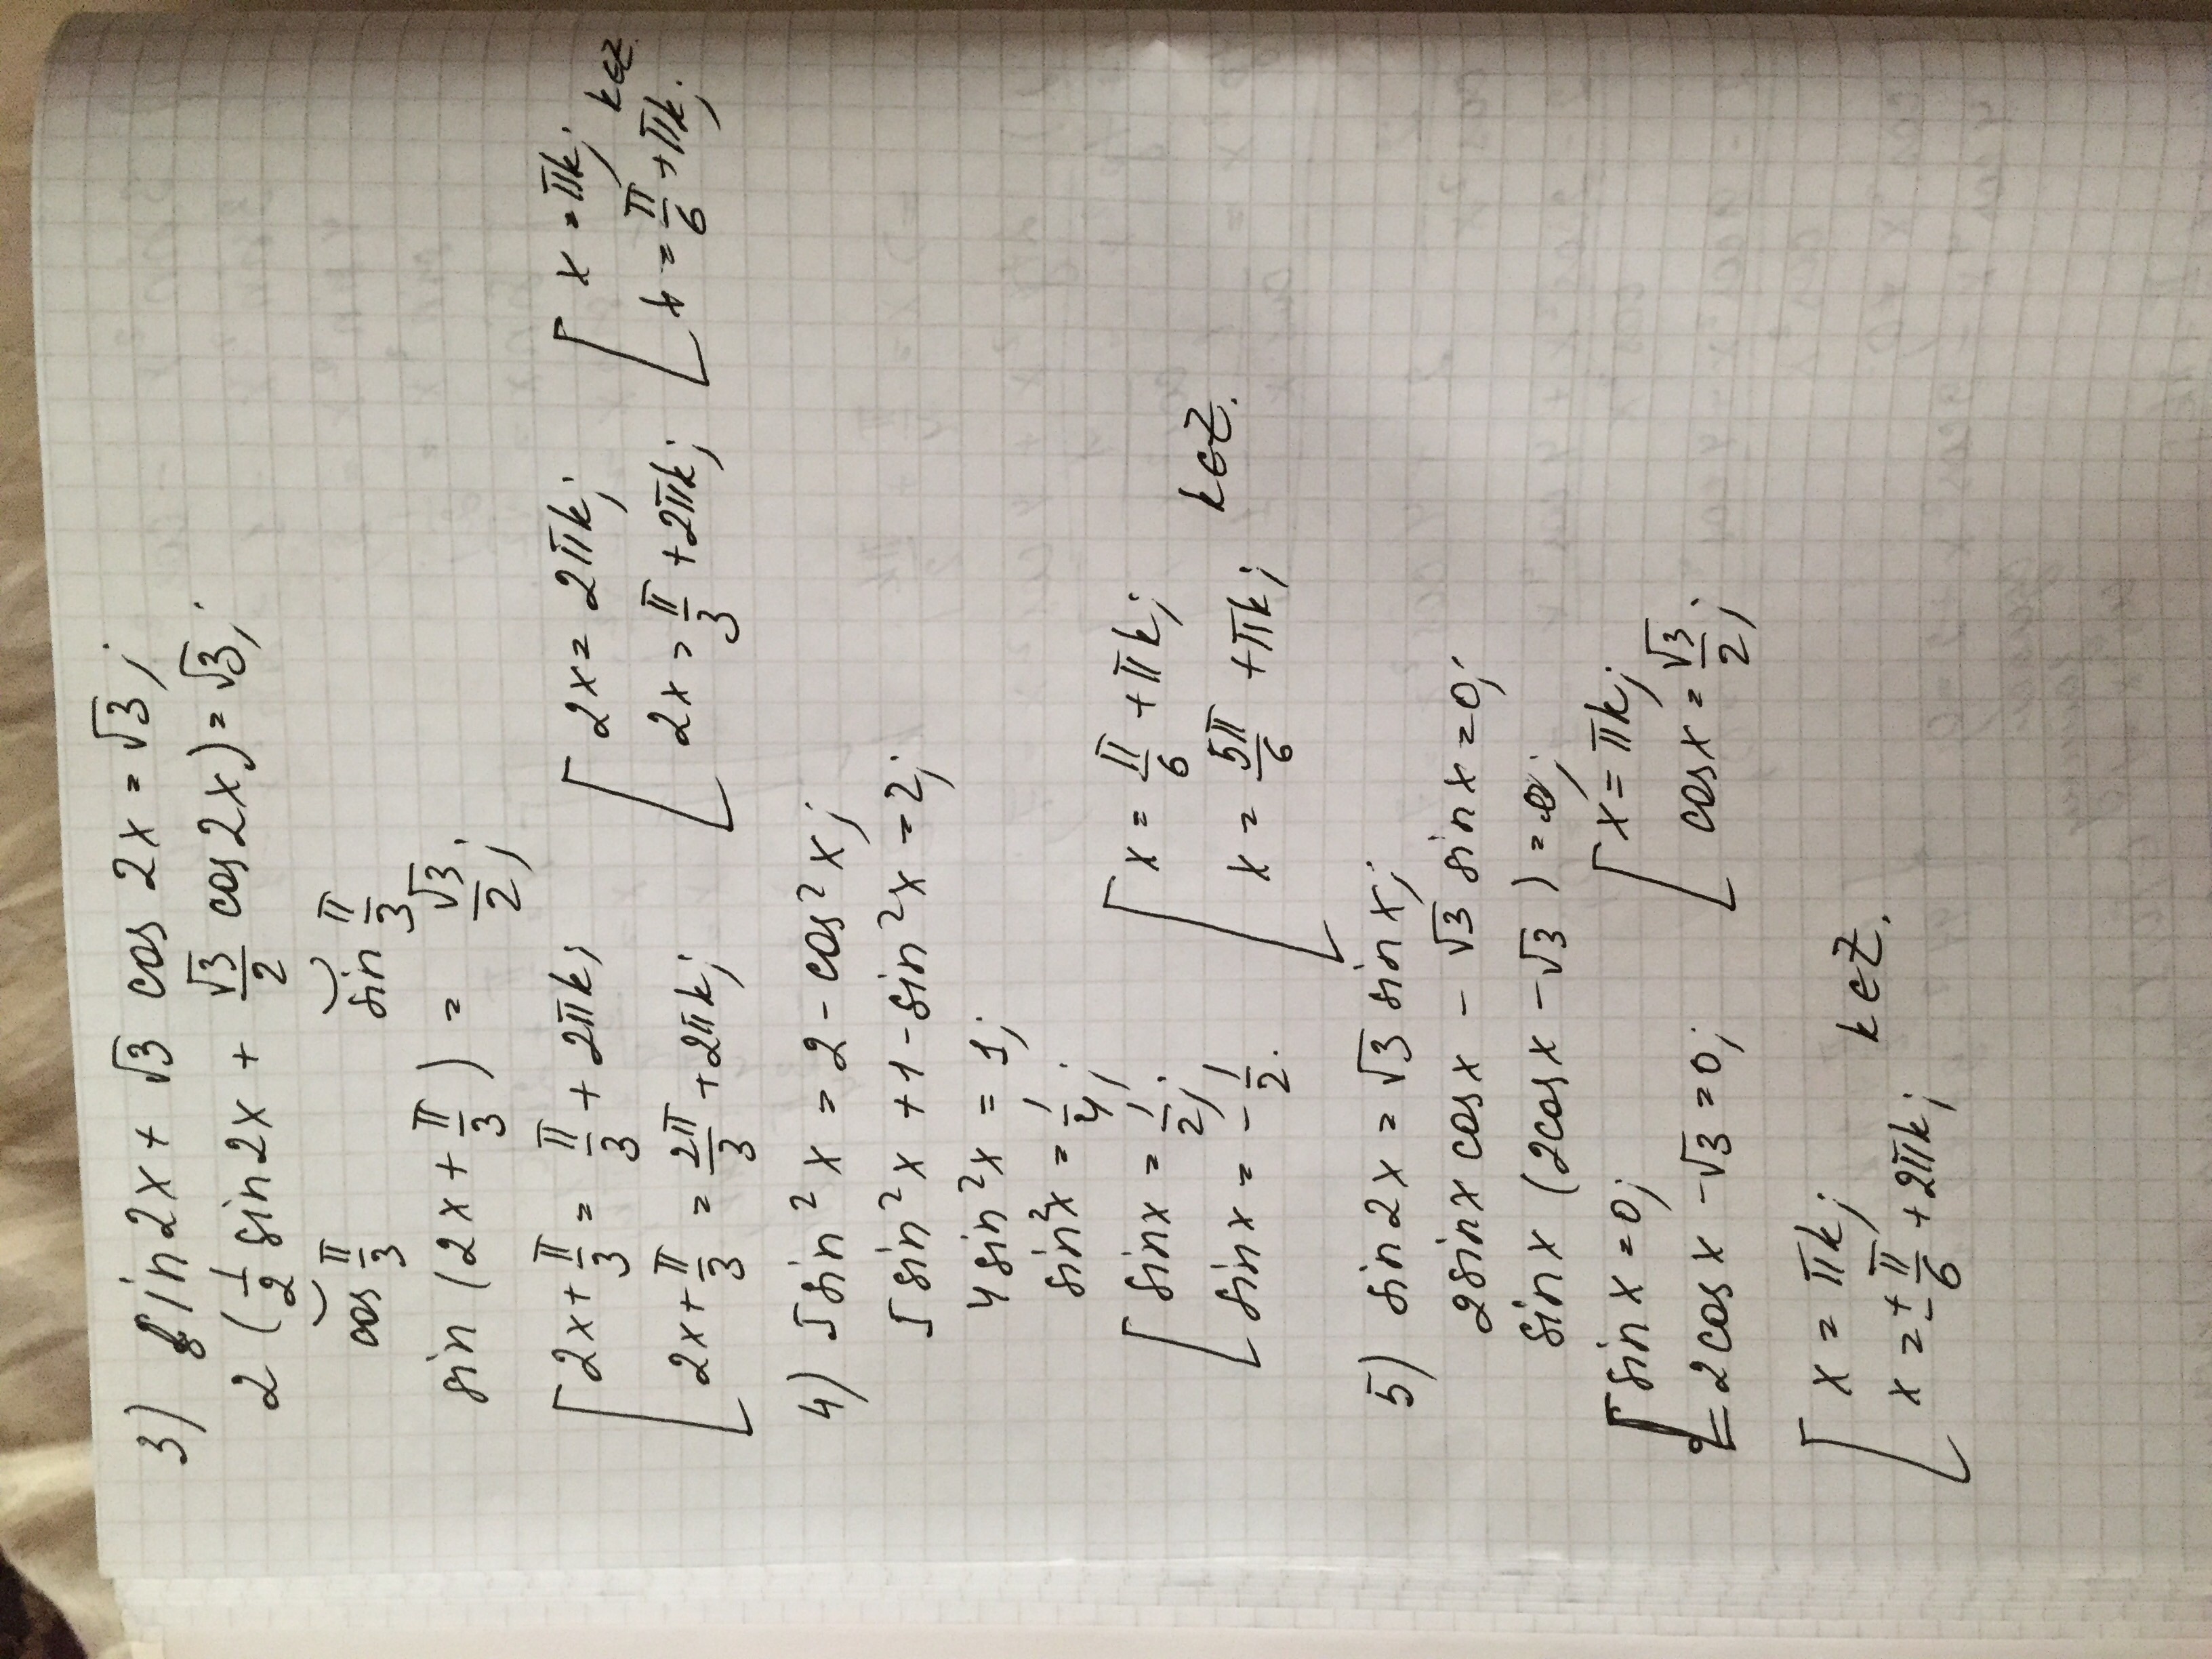 3) sin2x + √3 cos 2x = √3;
2 (1/2 sin2x + √3/2 cos2x) = √3;
cos π/3 sin π/3
sin (2x + π/3) = √3/2;
[ 2x + π/3 = π/3 + 2πk; [ 2x = 2πk; [ x = πk;
2x + π/3 = 2π/3 + 2πk; 2x = π/3 + 2πk; x = π/6 + πk; k∈Z.
4) 5sin²x = 2 - cos²x;
5sin²x + 1 - sin²x = 2;
4sin²x = 1;
sin²x = 1/4;
[ sinx = 1/2; [ x = π/6 + πk;
sinx = -1/2. x = 5π/6 + πk; k∈Z.
5) sin2x = √3 sinx;
2sinx cosx - √3 sinx = 0;
sinx (2cosx - √3) = 0;
[ sinx = 0; [ x = πk;
2cosx - √3 = 0; cosx = √3/2;
[ x = πk;
x = ± π/6 + 2πk; k∈Z.